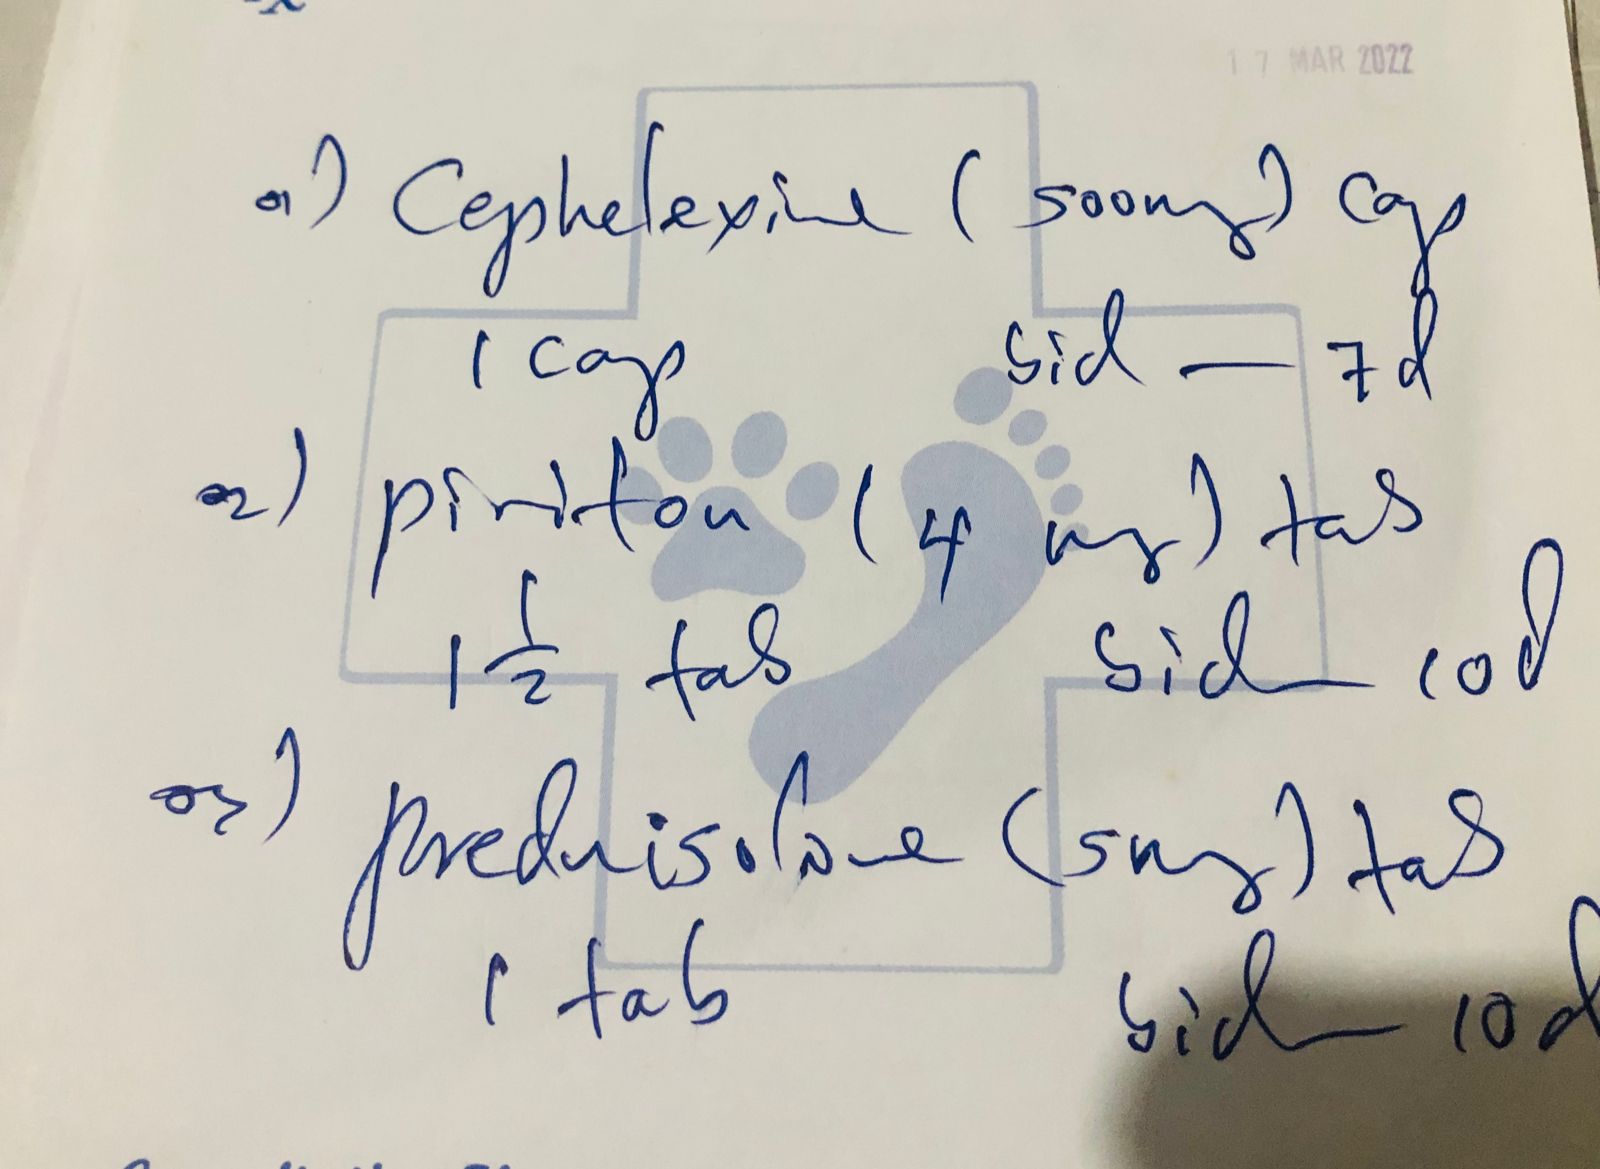 17 MAR 2022
01) Cephelexine (500mg) cap
1 cap bid — 7d
02) piriton (4 mg) tab
1 1/2 tab bid — 10d
03) prednisolone (5mg) tab
1 tab bid — 10d